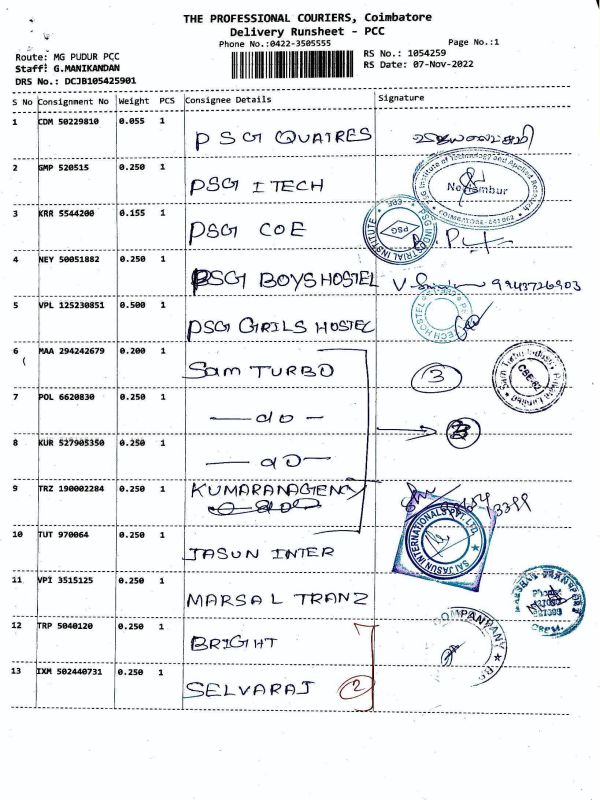 THE PROFESSIONAL COURIERS, Coimbatore
Delivery Runsheet - PCC
Phone No.:0422-3505555
Page No.:1
Route: MG PUDUR PCC
RS No.: 1054259
Staff: G.MANIKANDAN
RS Date: 07-Nov-2022
DRS No.: DCJB105425901
S No Consignment No Weight PCS Consignee Details Signature
1 CDM 50229810 0.055 1 PSG QUATRES
2 GMP 520515 0.250 1 PSG ITECH
PSG Institute of Technology and Applied Research
Neelambur
COIMBATORE-641062
3 KRR 5544200 0.155 1 PSG COE
PSG INDUSTRIAL INSTITUTE
PSG
4 NEY 50051882 0.250 1 PSG BOYS HOSTEL 9943726903
5 VPL 125230851 0.500 1 PSG GRILS HOSTEL
TECH HOSTEL
6 MAA 294242679 0.200 1 Sam TURBO 3
Sam Turbo Industry Private Limited
CBE-62
7 POL 6620830 0.250 1 — do —
8 KUR 527905350 0.250 1 — do —
9 TRZ 190002284 0.250 1 KUMARANAGENCY
10 TUT 970064 0.250 1 JASUN INTER
SAI JASUN INTERNATIONALS PVT. LTD.
11 VPI 3515125 0.250 1 MARSAL TRANZ
12 TRP 5040120 0.250 1 BRIGHT
COMPANY
13 IXM 502440731 0.250 1 SELVARAJ 2